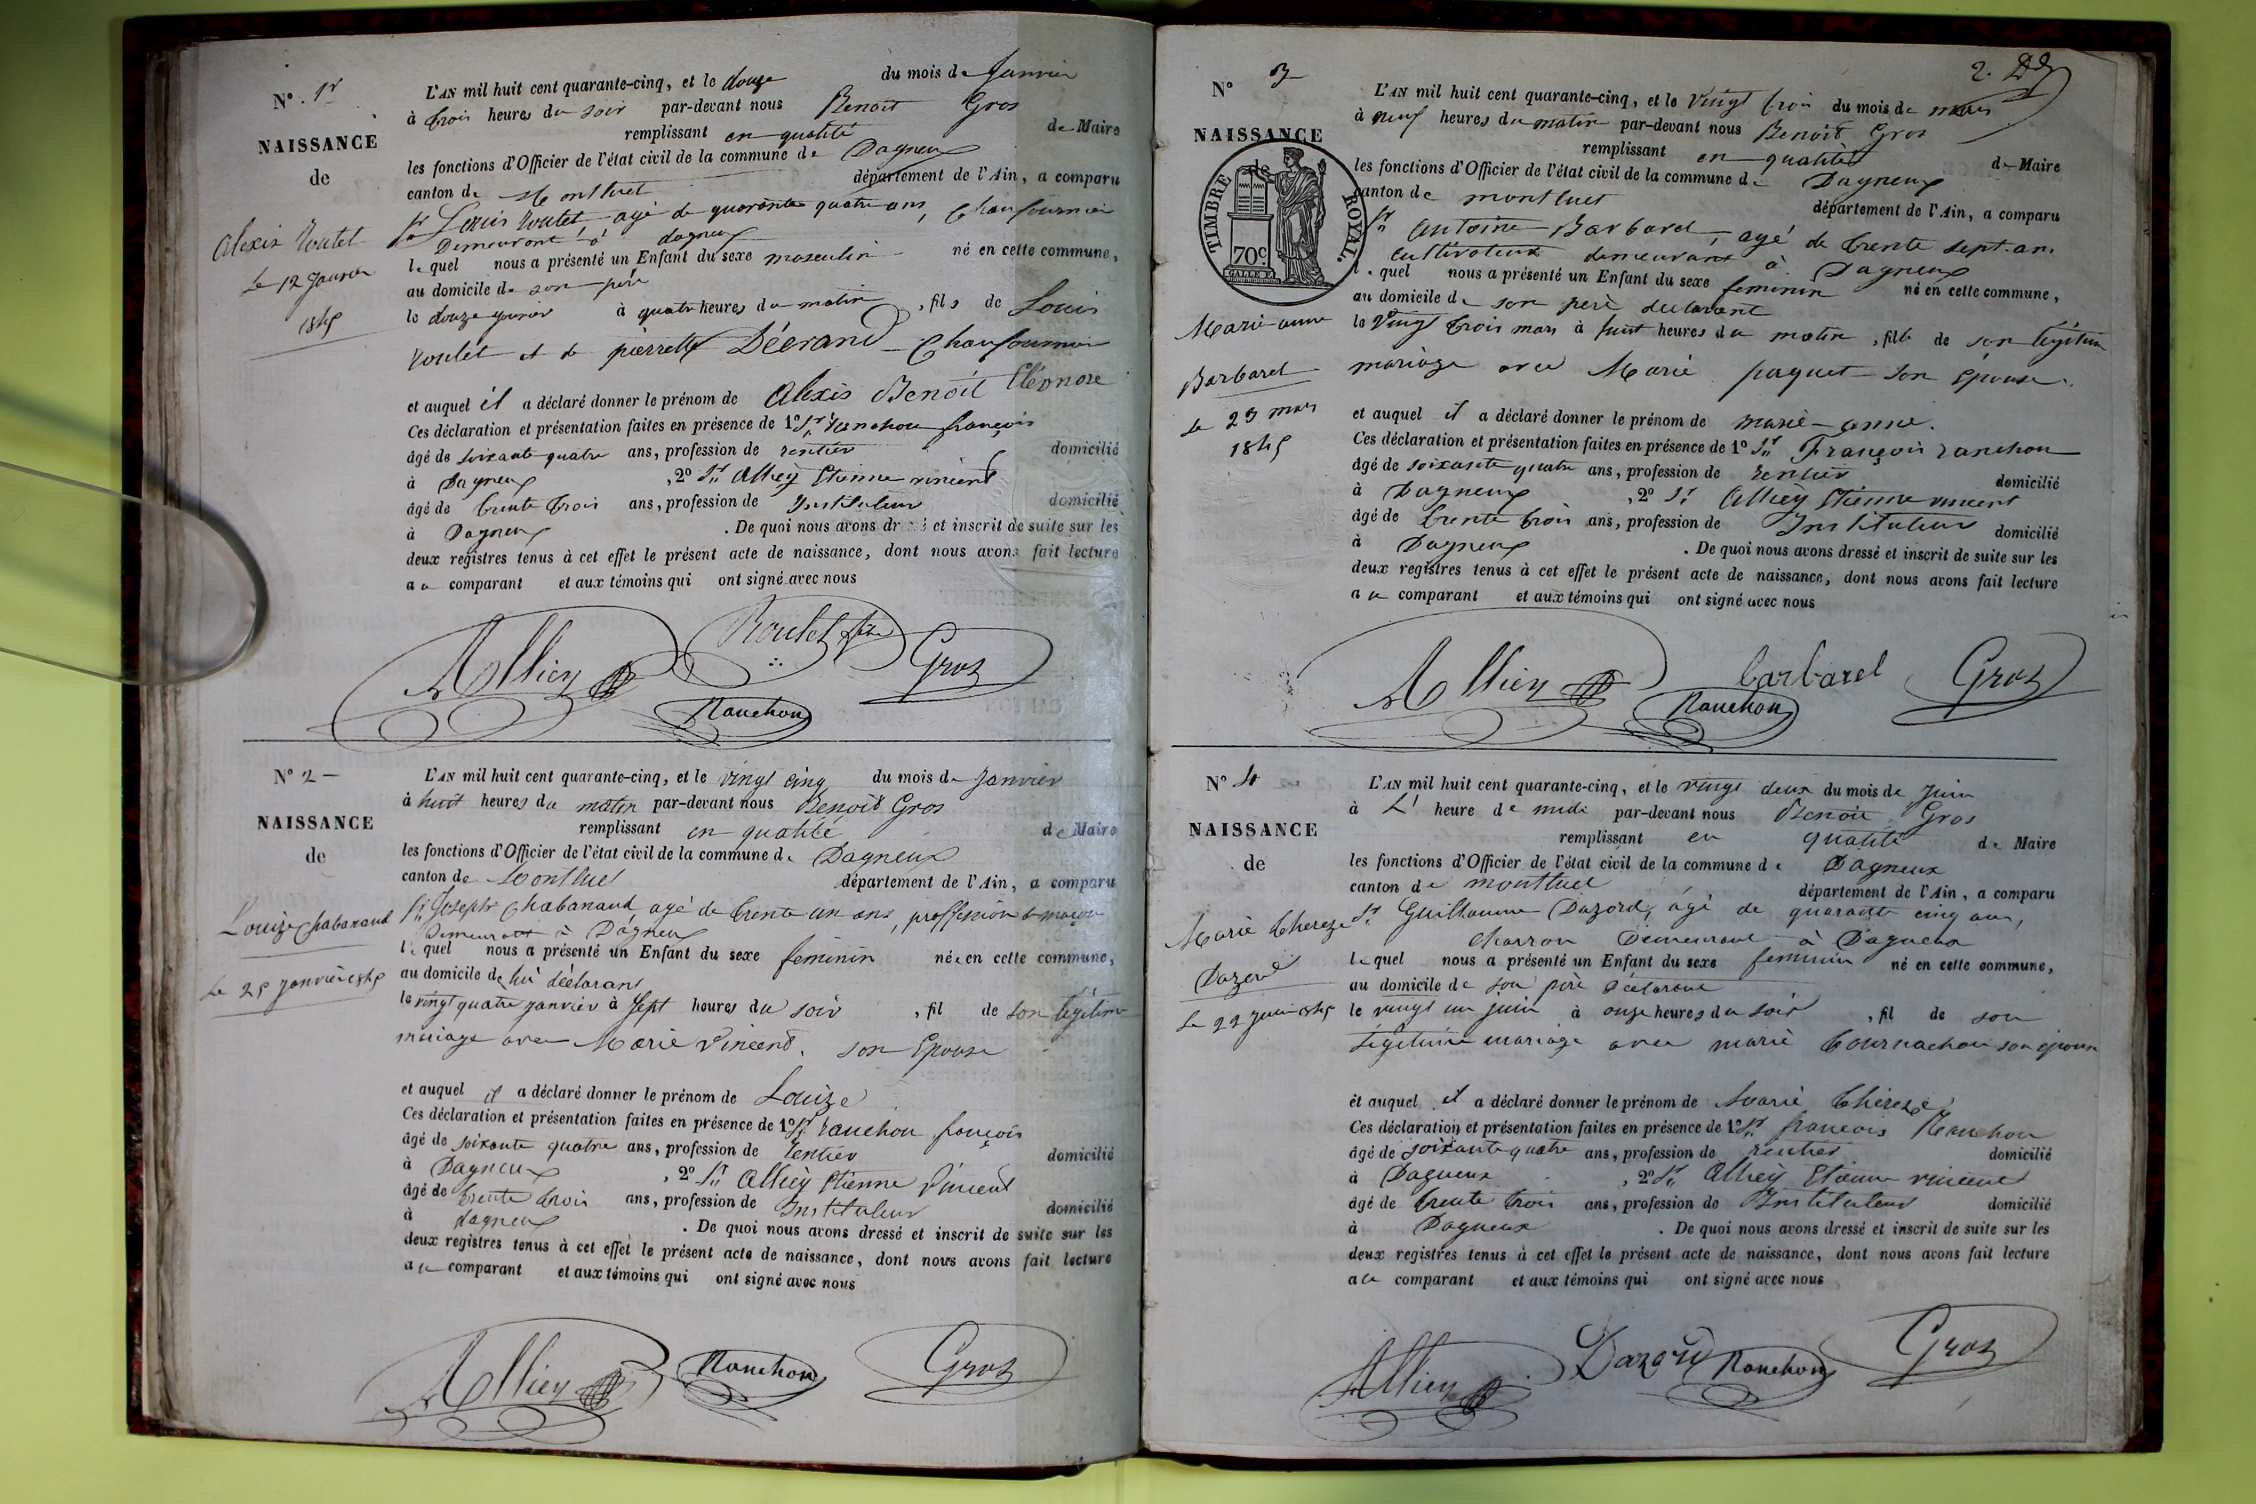 N° 1er
NAISSANCE
de
Alexis Roulet
Le 12 Janvier
1845
L'AN mil huit cent quarante-cinq, et le douze du mois de Janvier
à trois heures du soir par-devant nous Benoit Gros
remplissant en qualité de Maire
les fonctions d'Officier de l'état civil de la commune de Dagneux
canton de Montluel département de l'Ain, a comparu
Sr Louis Roulet, agé de quarante quatre ans, Chaufournier
Demeurant à dagneux
lequel nous a présenté un Enfant du sexe masculin né en cette commune,
au domicile de son père
le douze janvier à quatre heures du matin, fils de Louis
Roulet et de pierrette Déérand Chaufournier
et auquel il a déclaré donner le prénom de Alexis Benoit Eléonore
Ces déclaration et présentation faites en présence de 1° Sr Ranchon françois
âgé de soixante quatre ans, profession de rentier domicilié
à Dagneux, 2° Sr Alliey Etienne vincent
âgé de trente trois ans, profession de Instituteur domicilié
à Dagneux. De quoi nous avons dressé et inscrit de suite sur les
deux registres tenus à cet effet le présent acte de naissance, dont nous avons fait lecture
au comparant et aux témoins qui ont signé avec nous
Alliey Roulet Gros
Ranchon
N° 2
NAISSANCE
de
Louize Chabanaud
Le 25 janvier 1845
L'AN mil huit cent quarante-cinq, et le vingt cinq du mois de Janvier
à huit heures du matin par-devant nous Benoit Gros
remplissant en qualité de Maire
les fonctions d'Officier de l'état civil de la commune de Dagneux
canton de Montluel département de l'Ain, a comparu
Sr Joseph Chabanaud agé de trente un ans, proffession de maçon
Demeurant à Dagneux
lequel nous a présenté un Enfant du sexe feminin née en cette commune,
au domicile de lui déclarant
le vingt quatre janvier à sept heures du soir, fil de son légitime
mariage avec Marie Vincent, son Epouse
et auquel il a déclaré donner le prénom de Louize
Ces déclaration et présentation faites en présence de 1° Sr Ranchon françois
âgé de soixante quatre ans, profession de rentier domicilié
à Dagneux, 2° Sr Alliey Etienne Vincent
âgé de trente trois ans, profession de Instituteur domicilié
à dagneux. De quoi nous avons dressé et inscrit de suite sur les
deux registres tenus à cet effet le présent acte de naissance, dont nous avons fait lecture
au comparant et aux témoins qui ont signé avec nous
Alliey Ranchon Gros
2.
N° 3
NAISSANCE
de
TIMBRE ROYAL.
70c.
Marie-anne
Barbaret
Le 23 mars
1845
L'AN mil huit cent quarante-cinq, et le vingt trois du mois de mars
à neuf heures du matin par-devant nous Benoit Gros
remplissant en qualité de Maire
les fonctions d'Officier de l'état civil de la commune de Dagneux
canton de montluel département de l'Ain, a comparu
Sr Antoine Barbaret, agé de trente sept ans
cultivateur demeurant à Dagneux
lequel nous a présenté un Enfant du sexe feminin né en cette commune,
au domicile de son père declarant
le vingt trois mars à huit heures du matin, fille de son légitime
mariage avec Marie paquet son épouse.
et auquel il a déclaré donner le prénom de marie-anne.
Ces déclaration et présentation faites en présence de 1° Sr François Ranchon
âgé de soixante quatre ans, profession de rentier domicilié
à Dagneux, 2° Sr Alliey Etienne vincent
âgé de trente trois ans, profession de Instituteur domicilié
à Dagneux. De quoi nous avons dressé et inscrit de suite sur les
deux registres tenus à cet effet le présent acte de naissance, dont nous avons fait lecture
au comparant et aux témoins qui ont signé avec nous
Alliey barbarel Gros
Ranchon
N° 4
NAISSANCE
de
Marie thereze
Dazord
Le 22 juin 1845
L'AN mil huit cent quarante-cinq, et le vingt deux du mois de juin
à L' heure de midi par-devant nous Benoit Gros
remplissant en qualité de Maire
les fonctions d'Officier de l'état civil de la commune de Dagneux
canton de montluel département de l'Ain, a comparu
Sr Guillaume Dazord, âgé de quarante cinq ans,
charron Demeurant à Dagneux
lequel nous a présenté un Enfant du sexe feminin né en cette commune,
au domicile de son père déclarant
le vingt un juin à onze heures du soir, fil de son
légitime mariage avec marie tournachon son épouse
et auquel il a déclaré donner le prénom de Marie théreze
Ces déclaration et présentation faites en présence de 1° Sr francois Ranchon
âgé de soixante quatre ans, profession de rentier domicilié
à Dagneux, 2° Sr Alliey Etienne vincent
âgé de trente trois ans, profession de Instituteur domicilié
à Dagneux. De quoi nous avons dressé et inscrit de suite sur les
deux registres tenus à cet effet le présent acte de naissance, dont nous avons fait lecture
au comparant et aux témoins qui ont signé avec nous
Alliey Dazord Ranchon Gros